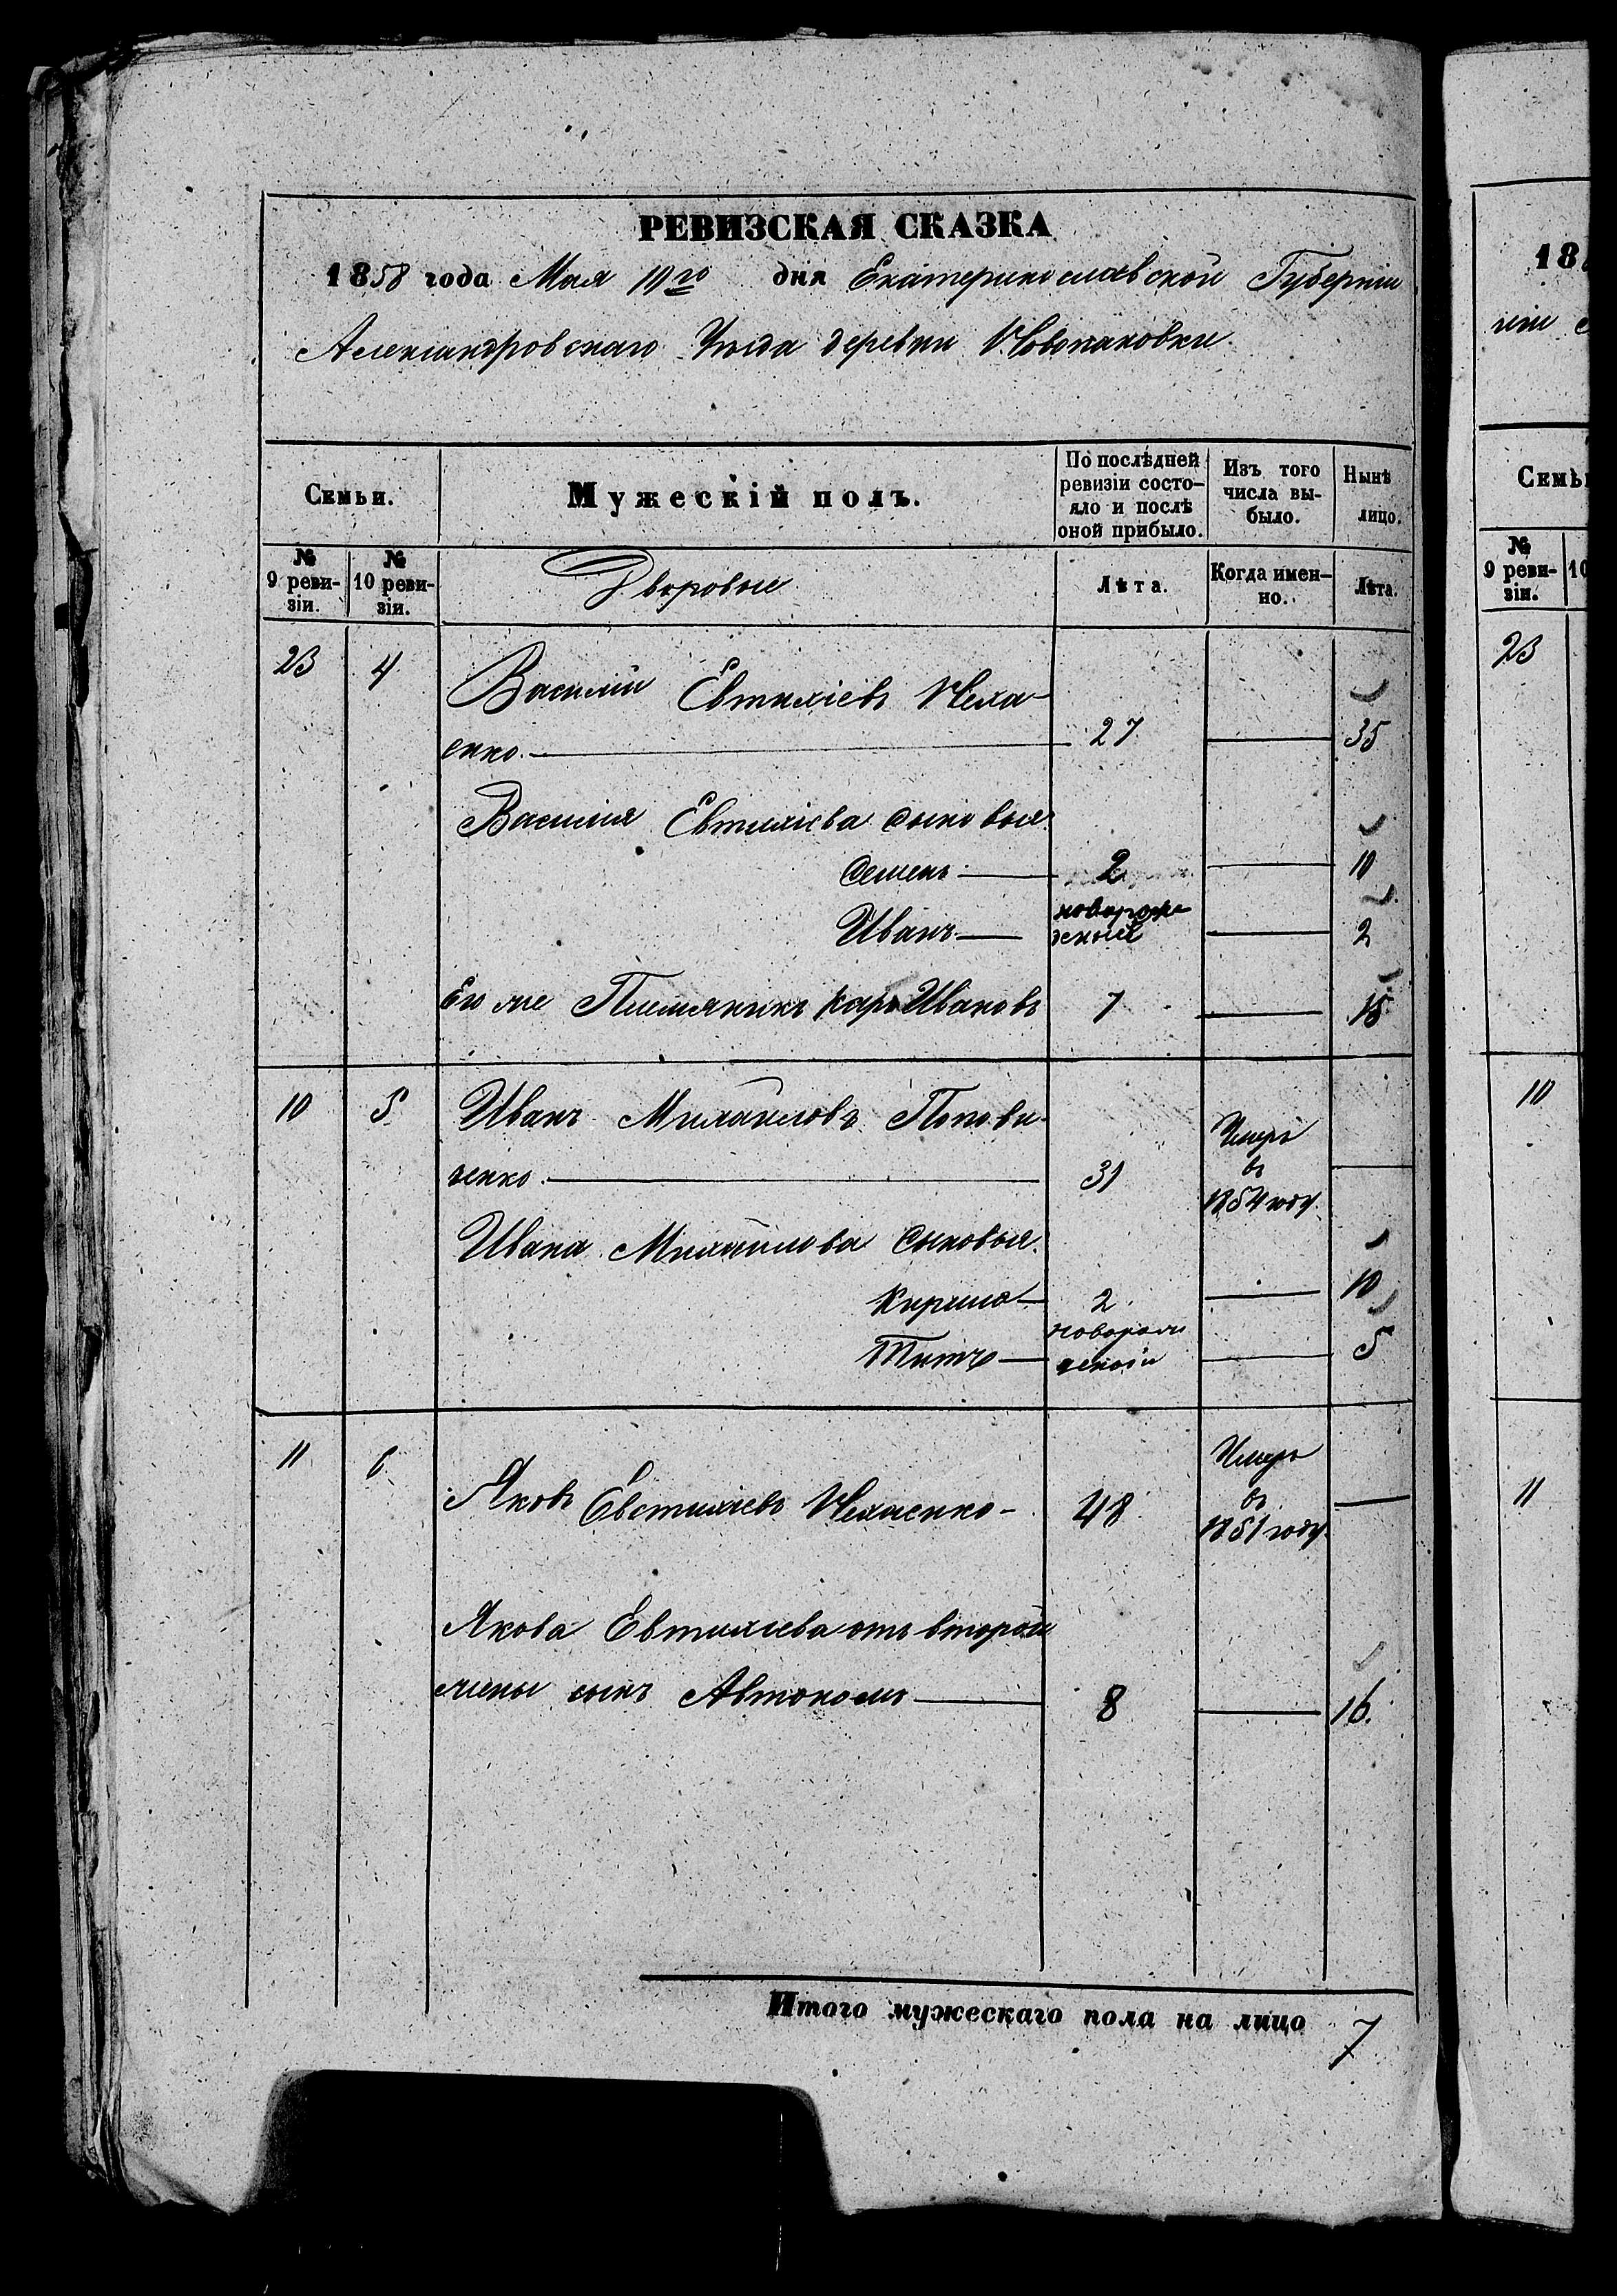 РЕВИЗСКАЯ СКАЗКА
1858 года Мая 10го дня Екатеринославской Губерніи
Александровскаго Уѣзда деревни
Семьи.
Мужескій полъ.
По послѣдней ревизіи состо-
яло и послѣ
оной прибыло.
Изъ того
числа вы-
было.
Нынѣ
лицо.
№
9 реви-
зіи.
№
10 реви-
зіи.
Дворовые
Лѣта.
Когда имен-
но.
Лѣта.
23 4 Василій Евтихіевъ
енко. 27 35
Василія Евтихіева сыновья
Семенъ 2 10
Иванъ новорож
денный 2
Его же Племяникъ Ивановъ 7 15
10 5 Иванъ Михайловъ Попови-
ченко. 31 Умеръ
въ
1854 году.
Ивана Михайлова Сыновья.
Кирила 2 10
Титъ новорож
деной 5
11 6 Яковъ Евстихіевъ 48 Умеръ
въ
1851 году.
Якова Евтихіева отъ второй
жены сынъ Автономъ 8 16.
Итого мужескаго пола на лицо 7
18
Семьи
№
9 реви-
зіи.
10
23
10
11